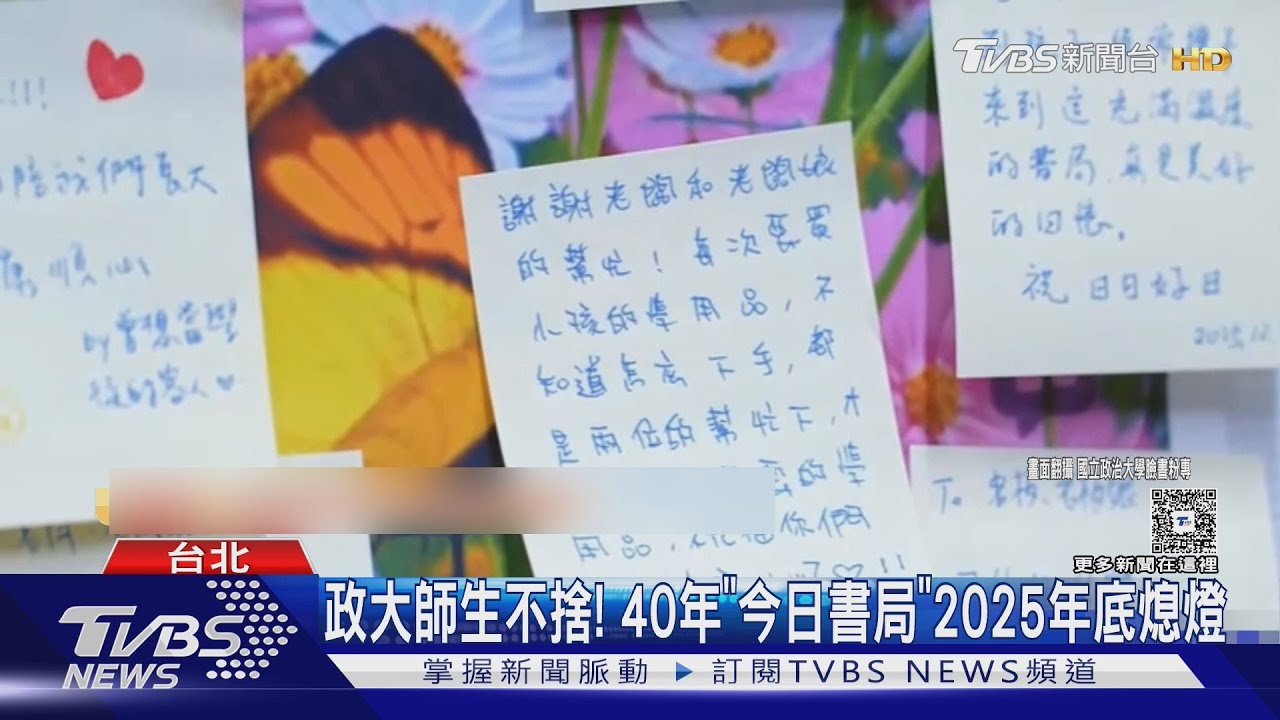 TVBS新聞台 HD
!!!
陪我們長大
順心
by 曾想當聖
的客人
謝謝老闆和老闆娘
的幫忙!每次要買
小孩的學用品,不
知道怎麼下手,都
是兩位的幫忙下,才
的學
用品,
你們
!!
來到這充滿溫度
的書局,真是美好
的回憶。
祝 日日好日
To.
畫面翻攝 國立政治大學臉書粉專
更多新聞在這裡
台北
政大師生不捨! 40年"今日書局"2025年底熄燈
TVBS NEWS
掌握新聞脈動 訂閱TVBS NEWS頻道